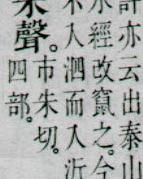 許亦云出泰山
水經改竄之。今
不入泗而入沂
朱聲。
市朱切。
四部。